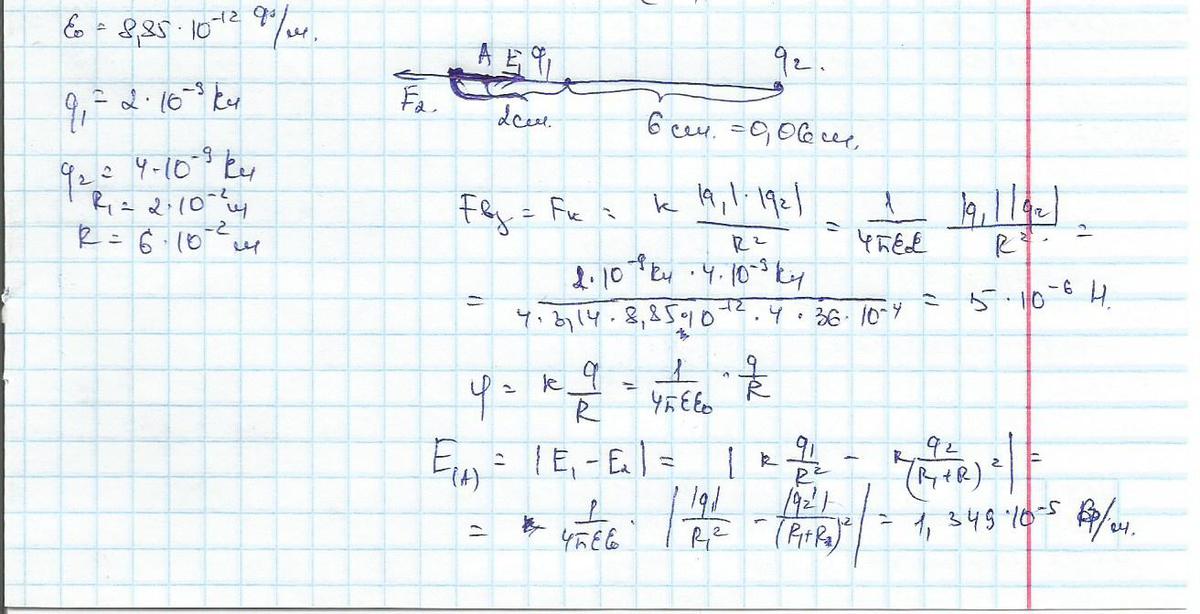 ε₀ = 8,85 · 10⁻¹² Ф/м.
q₁ = 2 · 10⁻⁹ Кл
q₂ = 4 · 10⁻⁹ Кл
R₁ = 2 · 10⁻² м
R = 6 · 10⁻² м
A E₁ q₁ q₂.
F₂. 2 см. 6 см. = 0,06 м.
Fвз = Fк = к |q₁| · |q₂| / R² = 1 / 4πεε |q₁| |q₂| / R². =
= 2 · 10⁻⁹ Кл · 4 · 10⁻⁹ Кл / 4 · 3,14 · 8,85 · 10⁻¹² · 4 · 36 · 10⁻⁴ = 5 · 10⁻⁶ Н.
φ = к q / R = 1 / 4πεε₀ · q / R
E(A) = |E₁ - E₂| = | к q₁ / R² - к q₂ / (R₁ + R)² | =
= 1 / 4πεε₀ · | |q₁| / R₁² - |q₂| / (R₁ + R₂)² | = 1,349 · 10⁻⁵ В/м.